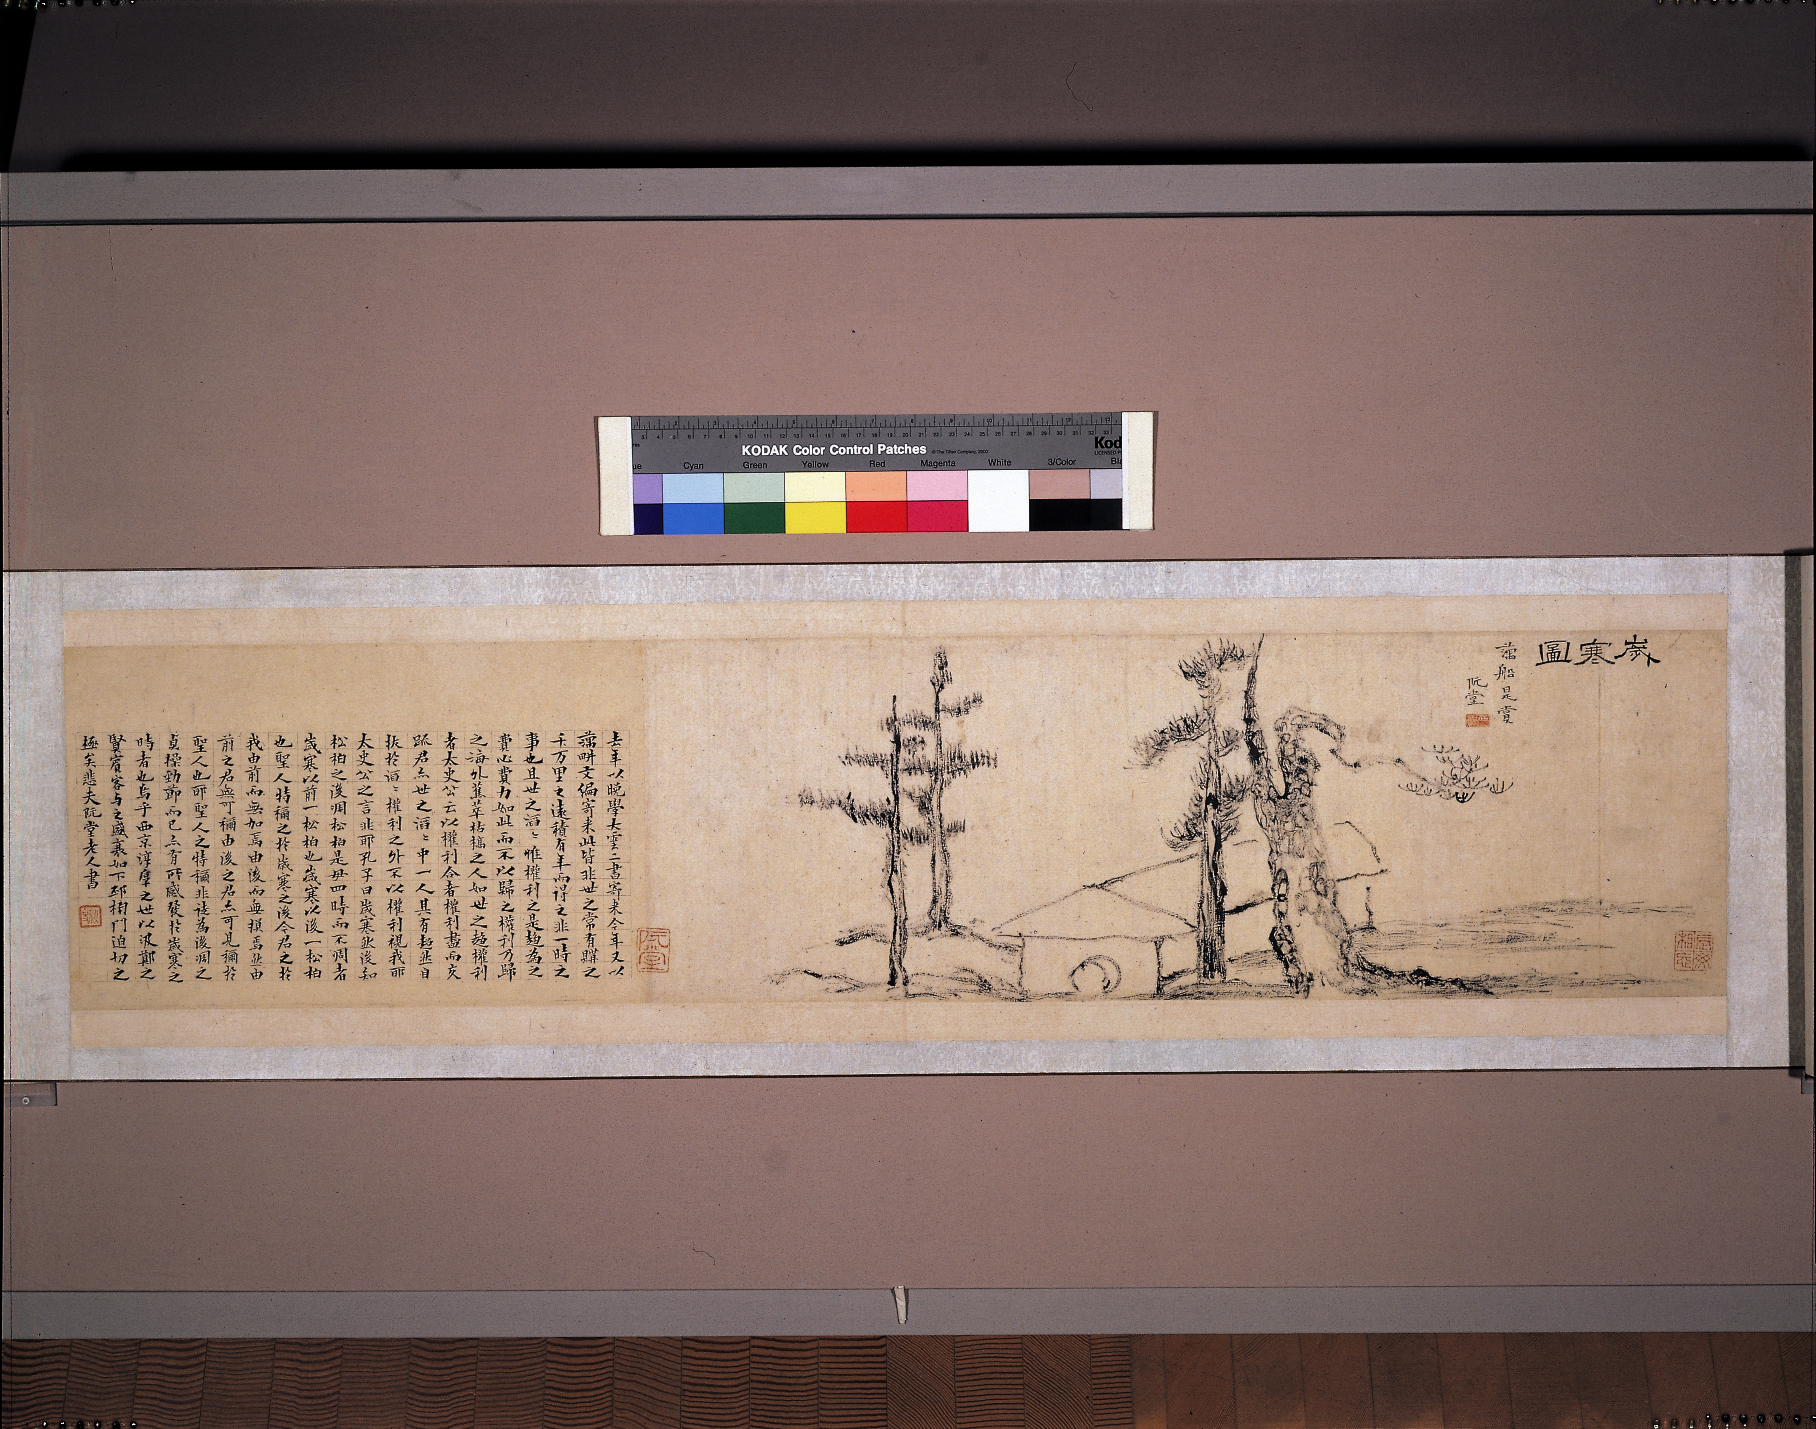 歲寒圖
藕船是賞
阮堂
長毋相忘
阮堂
去年以晚學大雲二書寄來今年又以
藕畊文編寄來此皆非世之常有購之
千万里之遠積有年而得之非一時之
事也且世之滔〻惟權利之是趨為之
費心費力如此而不以歸之權利乃歸
之海外蕉萃枯槁之人如世之趨權利
者太史公云以權利合者權利盡而交
踈君亦世之滔〻中一人其有超然自
拔於滔〻權利之外不以權利視我耶
太史公之言非耶孔子曰歲寒然後知
松柏之後凋松柏是毋四時而不凋者
歲寒以前一松柏也歲寒以後一松柏
也聖人特稱之於歲寒之後今君之於
我由前而無加焉由後而無損焉然由
前之君無可稱由後之君亦可見稱於
聖人也耶聖人之特稱非徒為後凋之
貞操勁節而已亦有所感發於歲寒之
時者也烏乎西京淳厚之世以汲鄭之
賢賓客与之盛衰如下邳榜門迫切之
極矣悲夫阮堂老人書
KODAK Color Control Patches
© The Tiffen Company, 2000
Cyan Green Yellow Red Magenta White 3/Color